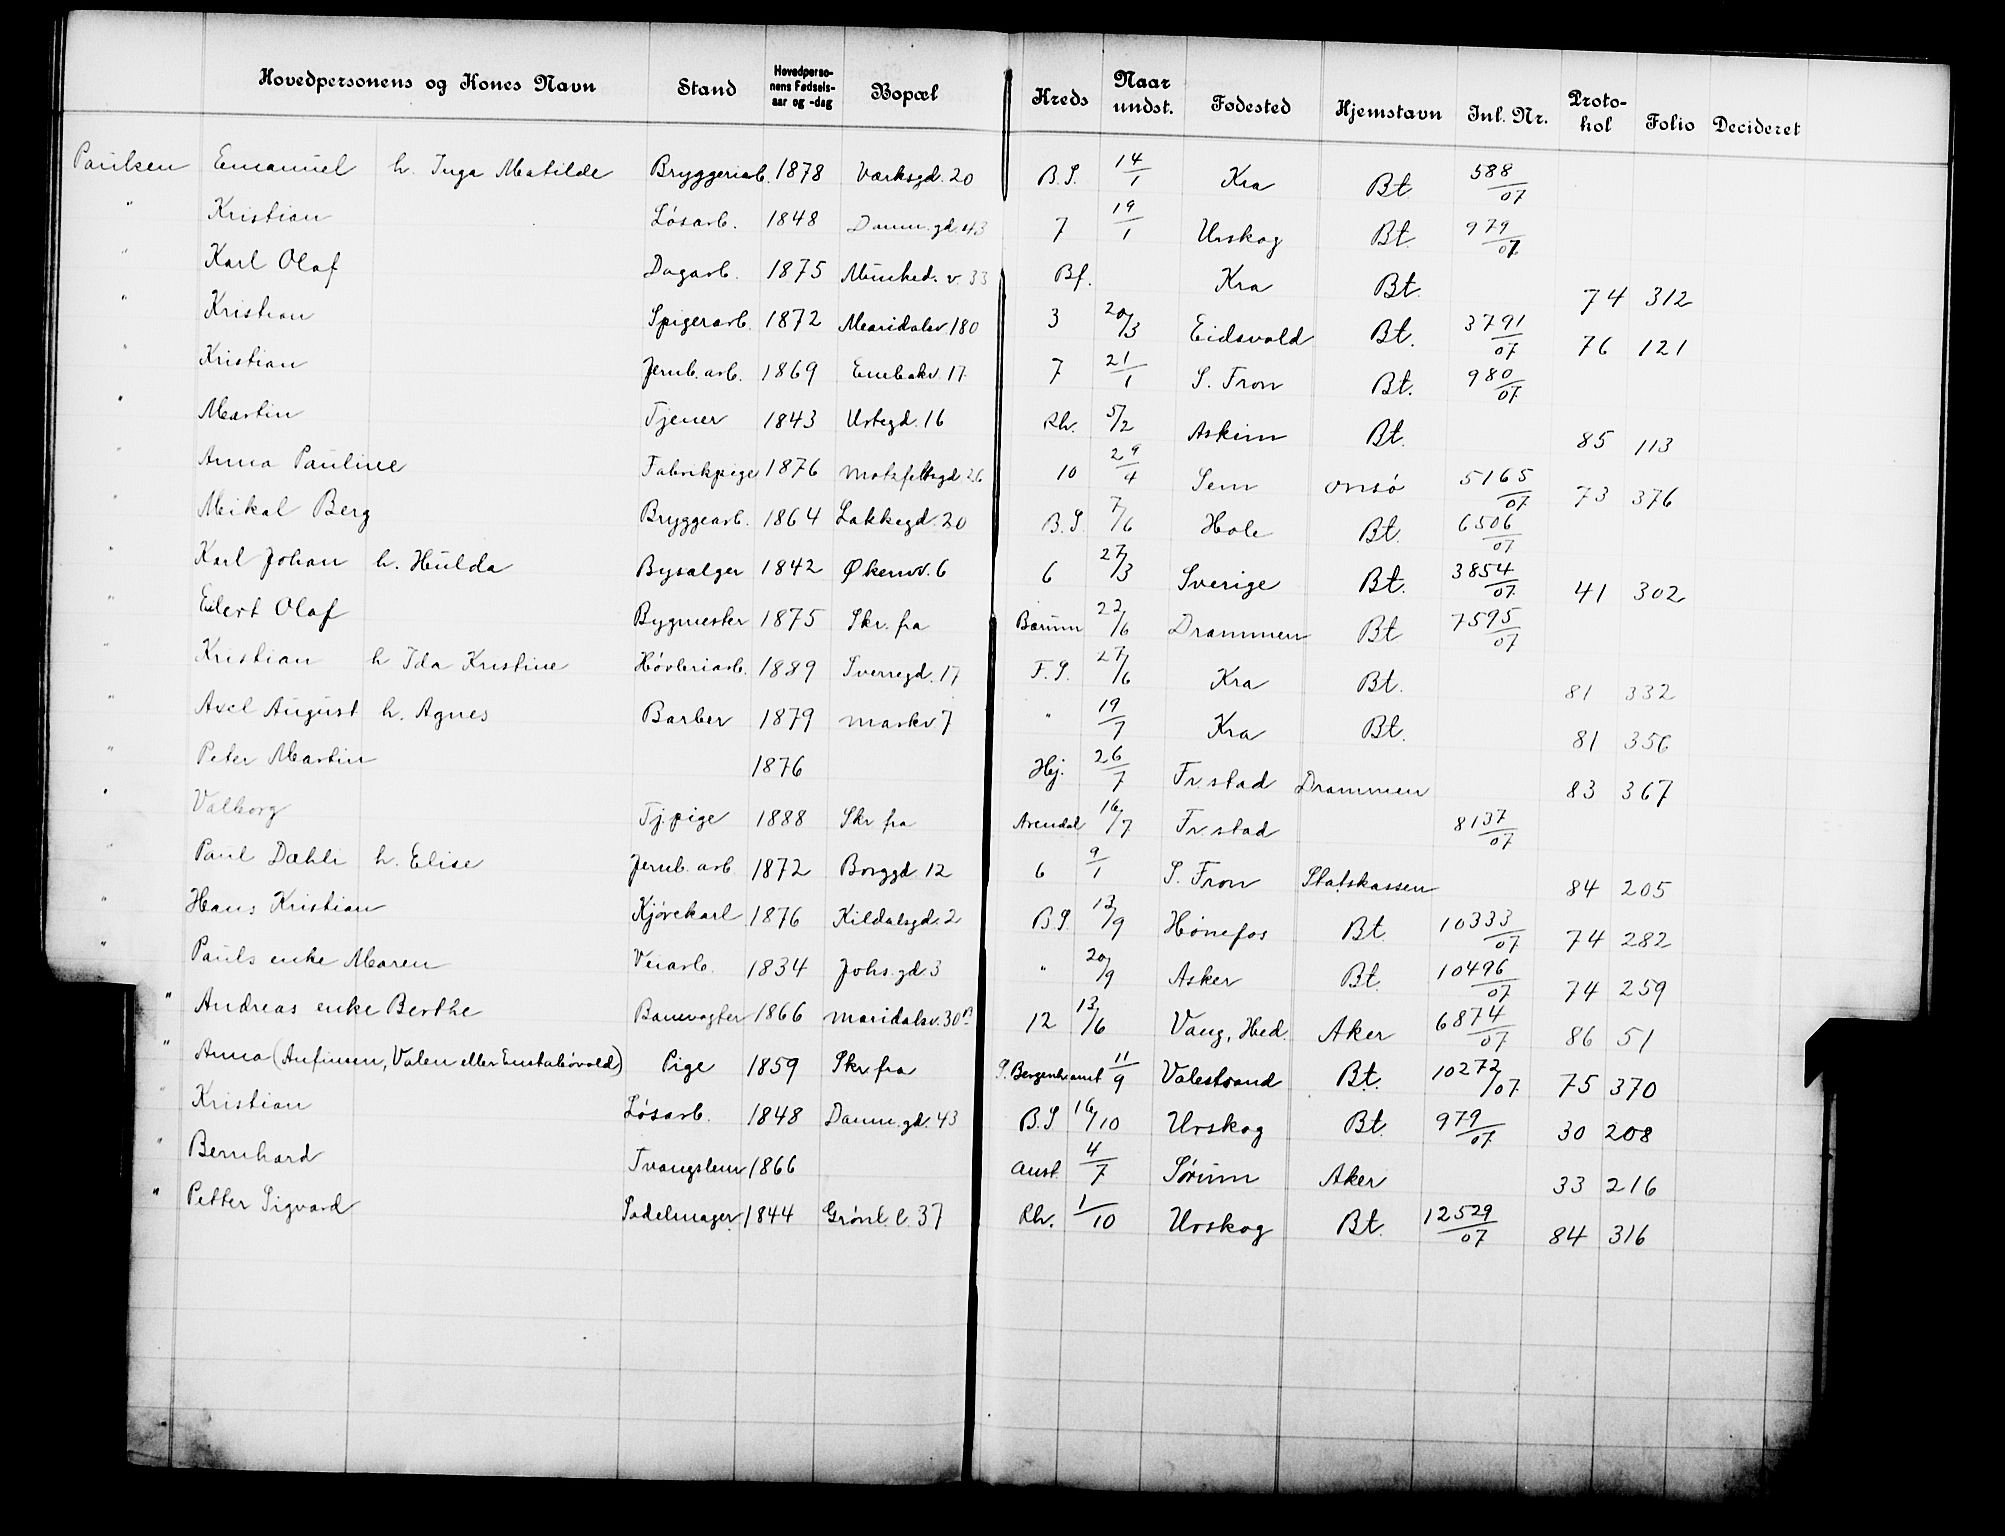 Hovedpersonens og Kones Navn Stand Hovedperso-nens Fødsels-aar og -dag Bopæl Kreds Naar undst. Fødested Hjemstavn Inl. Nr. Proto-kol Folio Decideret
Paulsen Emanuel h. Inga Matilde Bryggeriarb. 1878 Værksgd. 20 B.S. 14/1 Kra Bt. 588/07
" Kristian Løsarb. 1848 Damm.gd. 43 7 19/1 Urskog Bt. 979/07
" Karl Olaf Dagarb. 1875 Munked. v. 33 Bf. Kra Bt. 74 312
" Kristian Spigerarb. 1872 Maridalsv 180 3 20/3 Eidsvold Bt. 3791/07 76 121
" Kristian Jernb. arb. 1869 Enebakv. 17 7 21/1 S. Fron Bt. 980/07
" Martin Tjener 1843 Urtegd. 16 Rh. 5/2 Askim Bt. 85 113
" Anna Pauline Fabrikpige 1876 Motzfeldtsgd 26 10 29/4 Sem Onsø 5165/07 73 376
" Mikal Berg Bryggearb. 1864 Lakkegd. 20 B.S. 7/6 Hole Bt. 6506/07
" Karl Johan h. Hulda Bysælger 1842 Økernv. 6 6 27/3 Sverige Bt. 3854/07 41 302
" Eilert Olaf Bygmester 1875 Skr. fra Bærum 22/6 Drammen Bt 7595/07
" Kristian h Ida Kristine Høvleriarb. 1889 Sverregd. 17 F.S. 27/6 Kra Bt. 81 332
" Axel August h. Agnes Barber 1879 Markv 7 " 19/7 Kra Bt. 81 356
" Peter Martin 1876 Hj. 26/7 Fr.stad Drammen 83 367
" Valborg Tj.pige 1888 Skr fra Arendal 16/7 Fr.stad 8137/07
" Paul Dæhli h. Elise Jernb. arb 1872 Borggd 12 6 9/1 S. Fron Statskassen 84 205
" Hans Kristian Kjørekarl 1876 Kildalsgd. 2 B.S. 13/9 Hønefos Bt 10333/07 74 282
" Pauls enke Maren Veiarb. 1834 Johs.gd 3 " 20/9 Asker Bt. 10496/07 74 259
" Andreas enke Berthe Banevogter 1866 Maridalsv. 30 B 12 13/6 Vang, Hed. Aker 6874/07 86 51
" Anna (Anfinsen, Valen eller ) Pige 1859 Skr fra S. Bergenh. amt 11/9 Valestrand Bt. 10272/07 75 370
" Kristian Løsarb. 1848 Damm.gd. 43 B.S 16/10 Urskog Bt. 979/07 30 208
" Bernhard Tvangslem 1866 Anst. 4/7 Sørum Aker 33 216
" Petter Sigvard Sadelmager 1844 Grønl. l. 37 Rh. 1/10 Urskog Bt. 12529/07 84 316